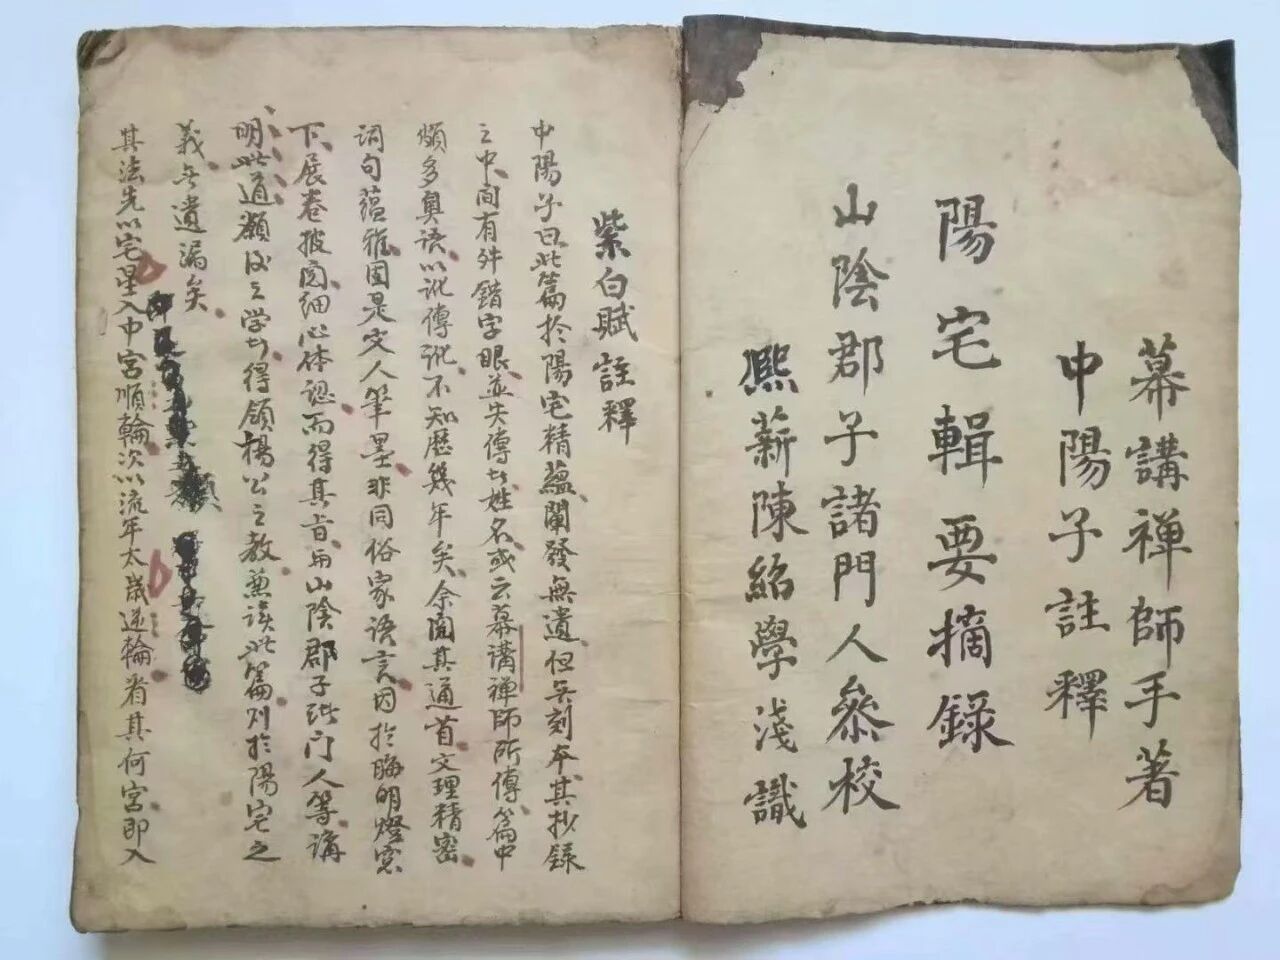 幕講禅師手著
中陽子註釋
陽宅輯要摘錄
山陰郡子諸門人叅校
熙薪陳紹學淺識
紫白賦註釋
中陽子曰此篇於陽宅精蘊闡發無遺但无刻本其抄錄
之中间有舛錯字眼並失傳者姓名或云幕講禅師所傳篇中
頗多奥语以訛傳訛不知歷幾年矣余閱其通首文理精密
词句蕴雅固是文人筆墨非同俗家语言因於晦明燈窓
下展卷披阅细心体認而得其旨与山陰郡子諸门人等講
明此道願後之学者得領楊公之教兼读此篇则於陽宅之
義无遺漏矣
其法先以宅星入中宫順輪次以流年太歲遞輪看其何宫即入